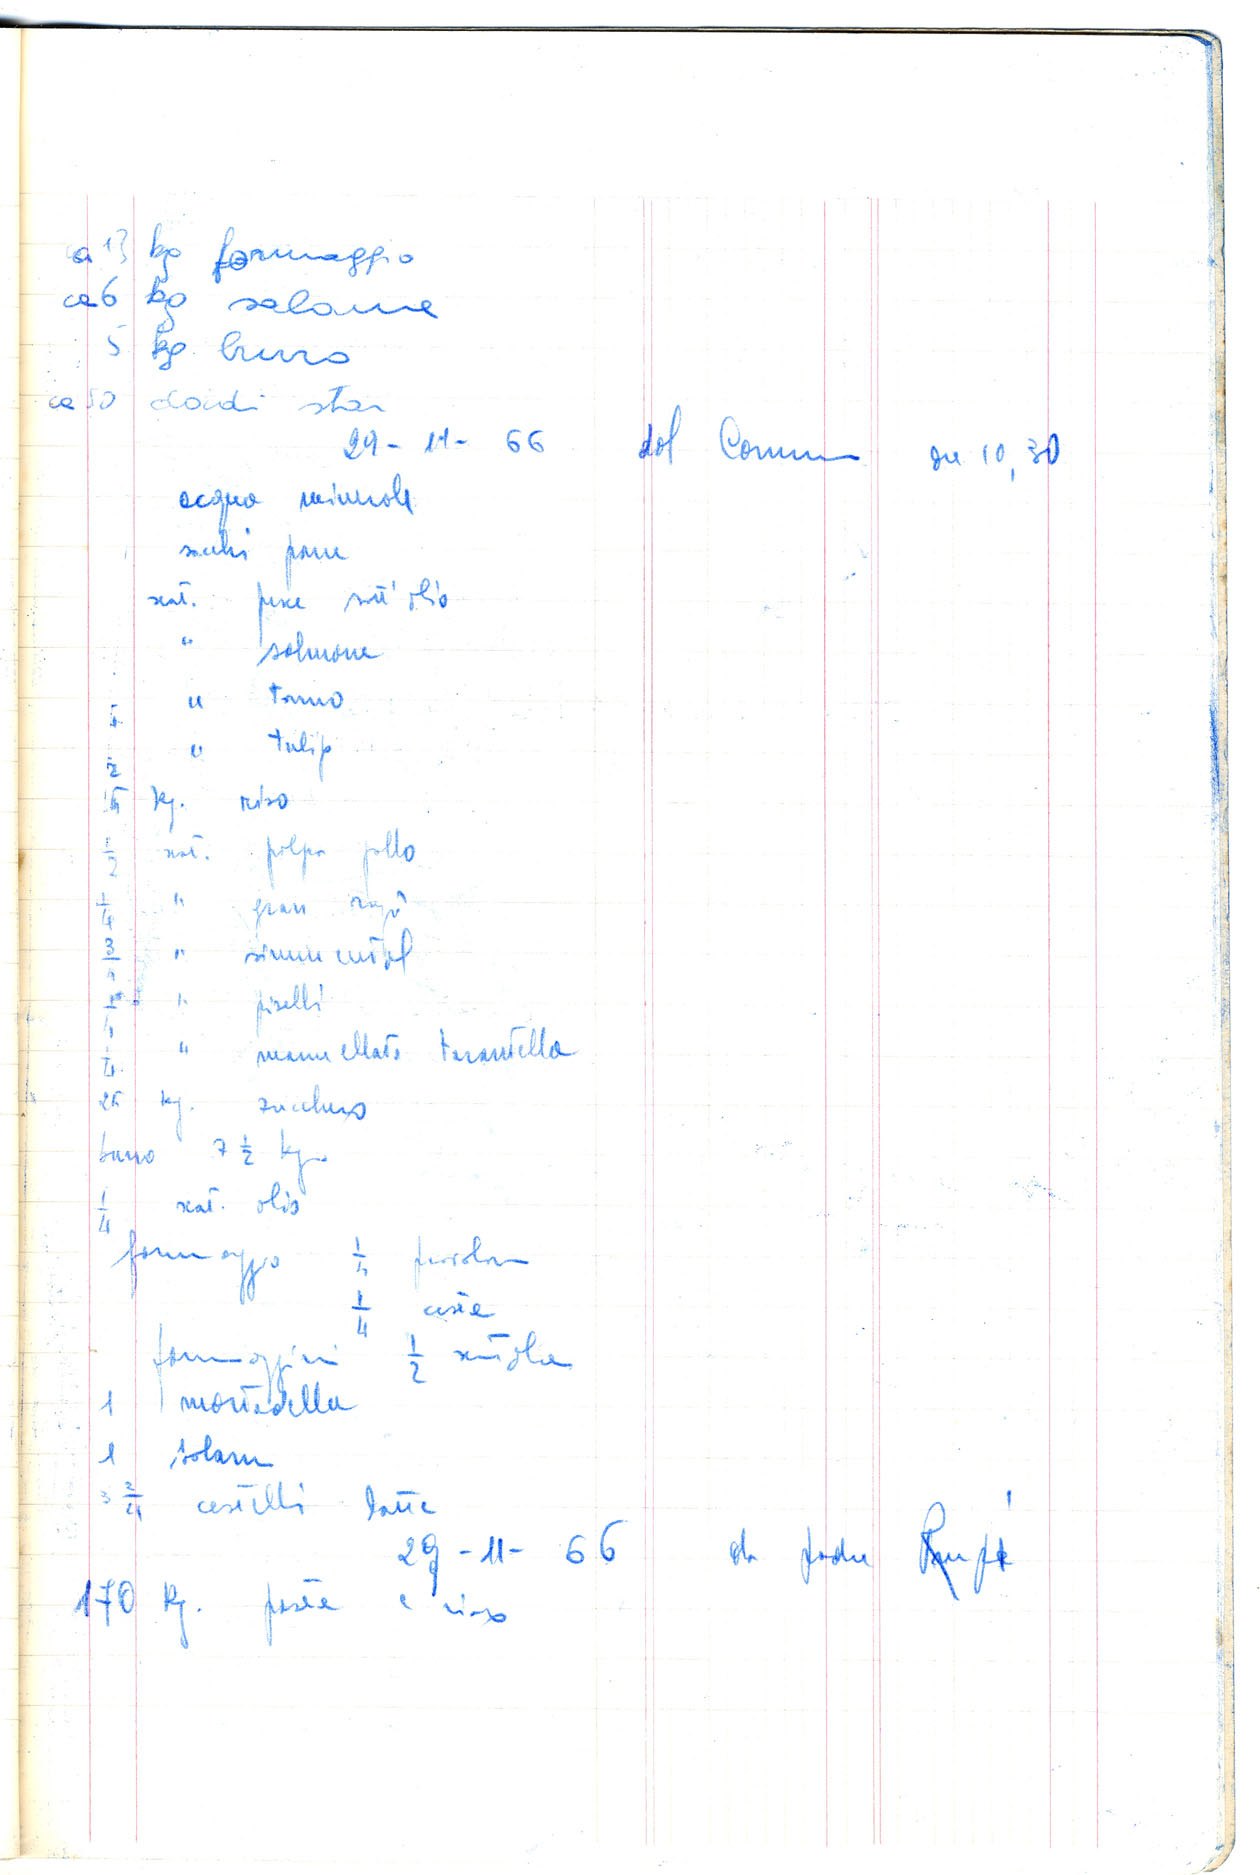 ca 13 kg formaggio
ca 6 kg salame
5 kg burro
ca 50 dadi star
29-11-66 dal Comune ore 10,30
acqua minerale
sacchi pane
scat. pesce sott'olio
" salmone
" tonno
" tulip
15 kg. riso
1/2 scat. polpa pollo
1/4 " gran ragù
3/4 " simmenthal
1/4 " piselli
1/4 " marmellata tarantella
25 kg. zucchero
burro 7 1/2 kg.
1/4 scat. olio
formaggio 1/4 provolone
1/4 ceste
formaggini 1/2 scatola
1 mortadella
1 salame
3 3/4 cestelli latte
29-11-66 da padre
170 kg. pasta e riso